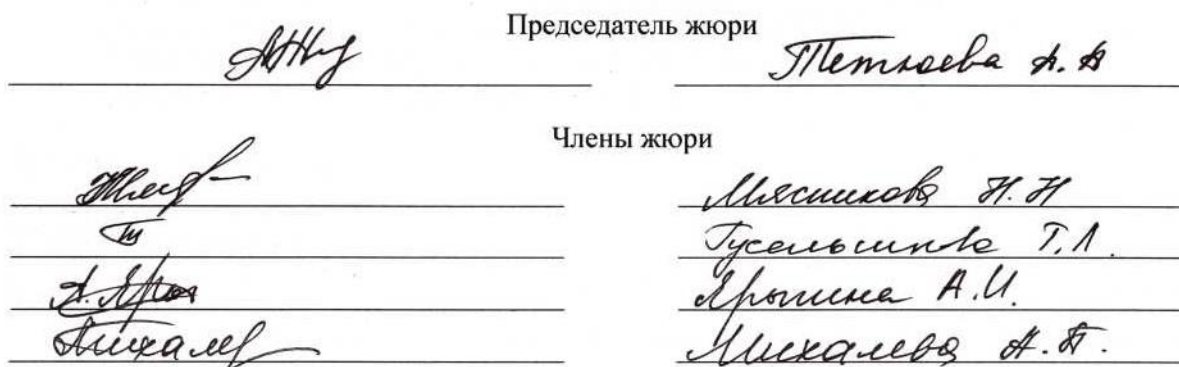 Председатель жюри
Тетюева А. А
Члены жюри
Мясникова Н. Н
Гусельникова Т. Л.
Ярыгина А. И.
Михалева А. П.